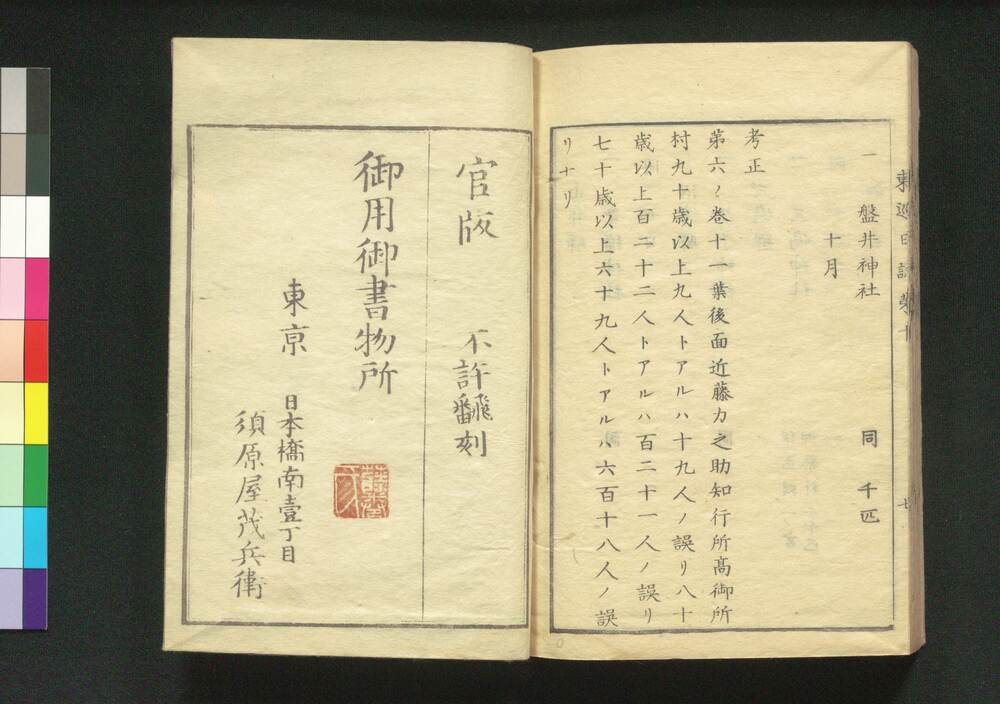 一 盤井神社 同 千匹
十月
考正
第六ノ巻十一葉後面近藤力之助知行所髙御所
村九十歳以上九人トアルハ十九人ノ誤リ八十
歳以上百二十二人トアルハ百二十一人ノ誤リ
七十歳以上六十九人トアルハ六百十八人ノ誤
リナリ
官版 不許飜刻
御用御書物所
東京 日本橋南壹丁目
須原屋茂兵衛